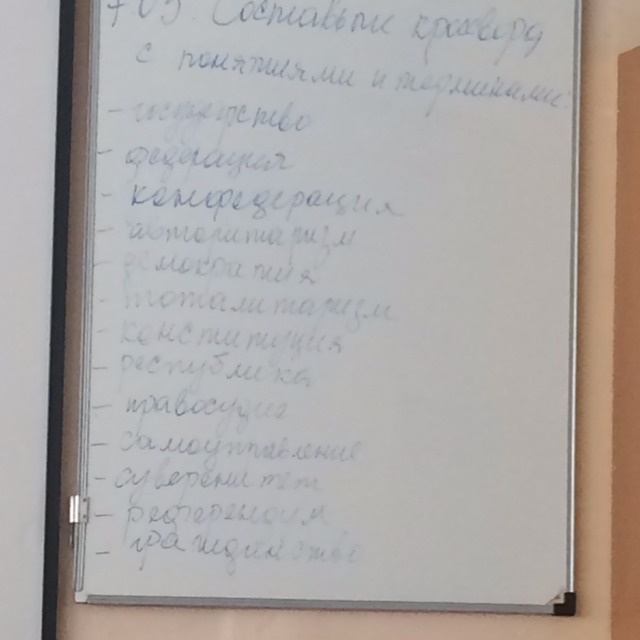 Составьте кроссворд
с понятиями и терминами:
- государство
- федерация
- конфедерация
- авторитаризм
- демократия
- тоталитаризм
- конституция
- республика
- правосудие
- самоуправление
- суверенитет
- референдум
- гражданство